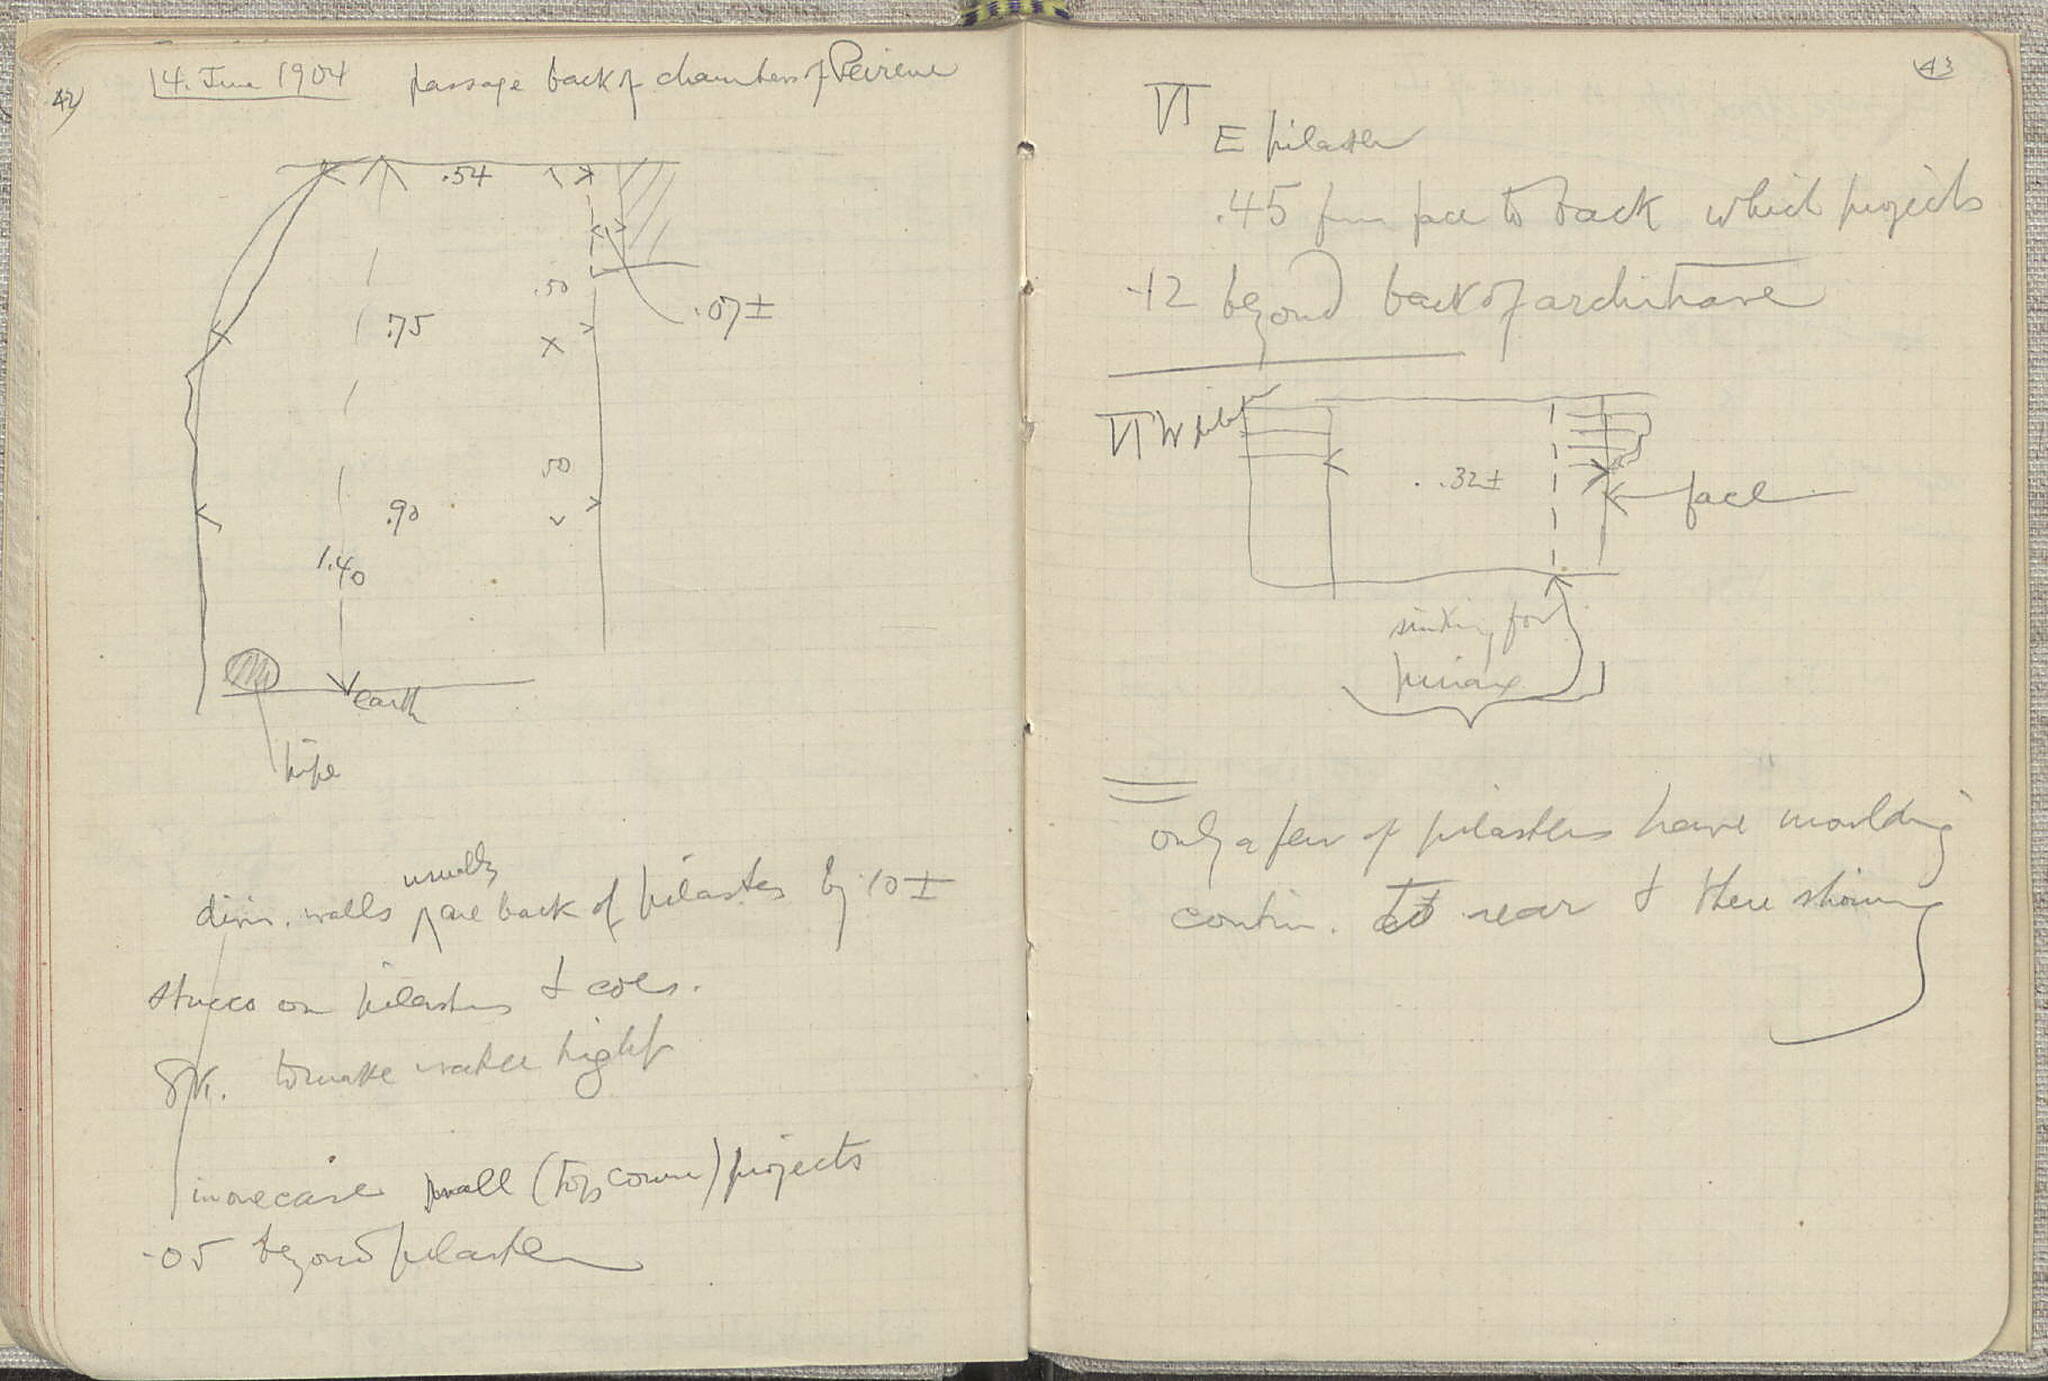 42)
14. June 1904 passage back of chambers of Peirene
.54
.50
.07±
.75
.50
.90
1.40
earth
pipe
usually
divis. walls are back of pilasters by .10±
stucco on pilasters & cols.
to make water tight
in one case wall (top course) projects
.05 beyond pilaster
43
VI
E pilaster
.45 from face to back which projects
.12 beyond back of architrave
VI W pilaster
.32±
face
sinking for
only a few of pilasters have moulding
contin. at rear & there